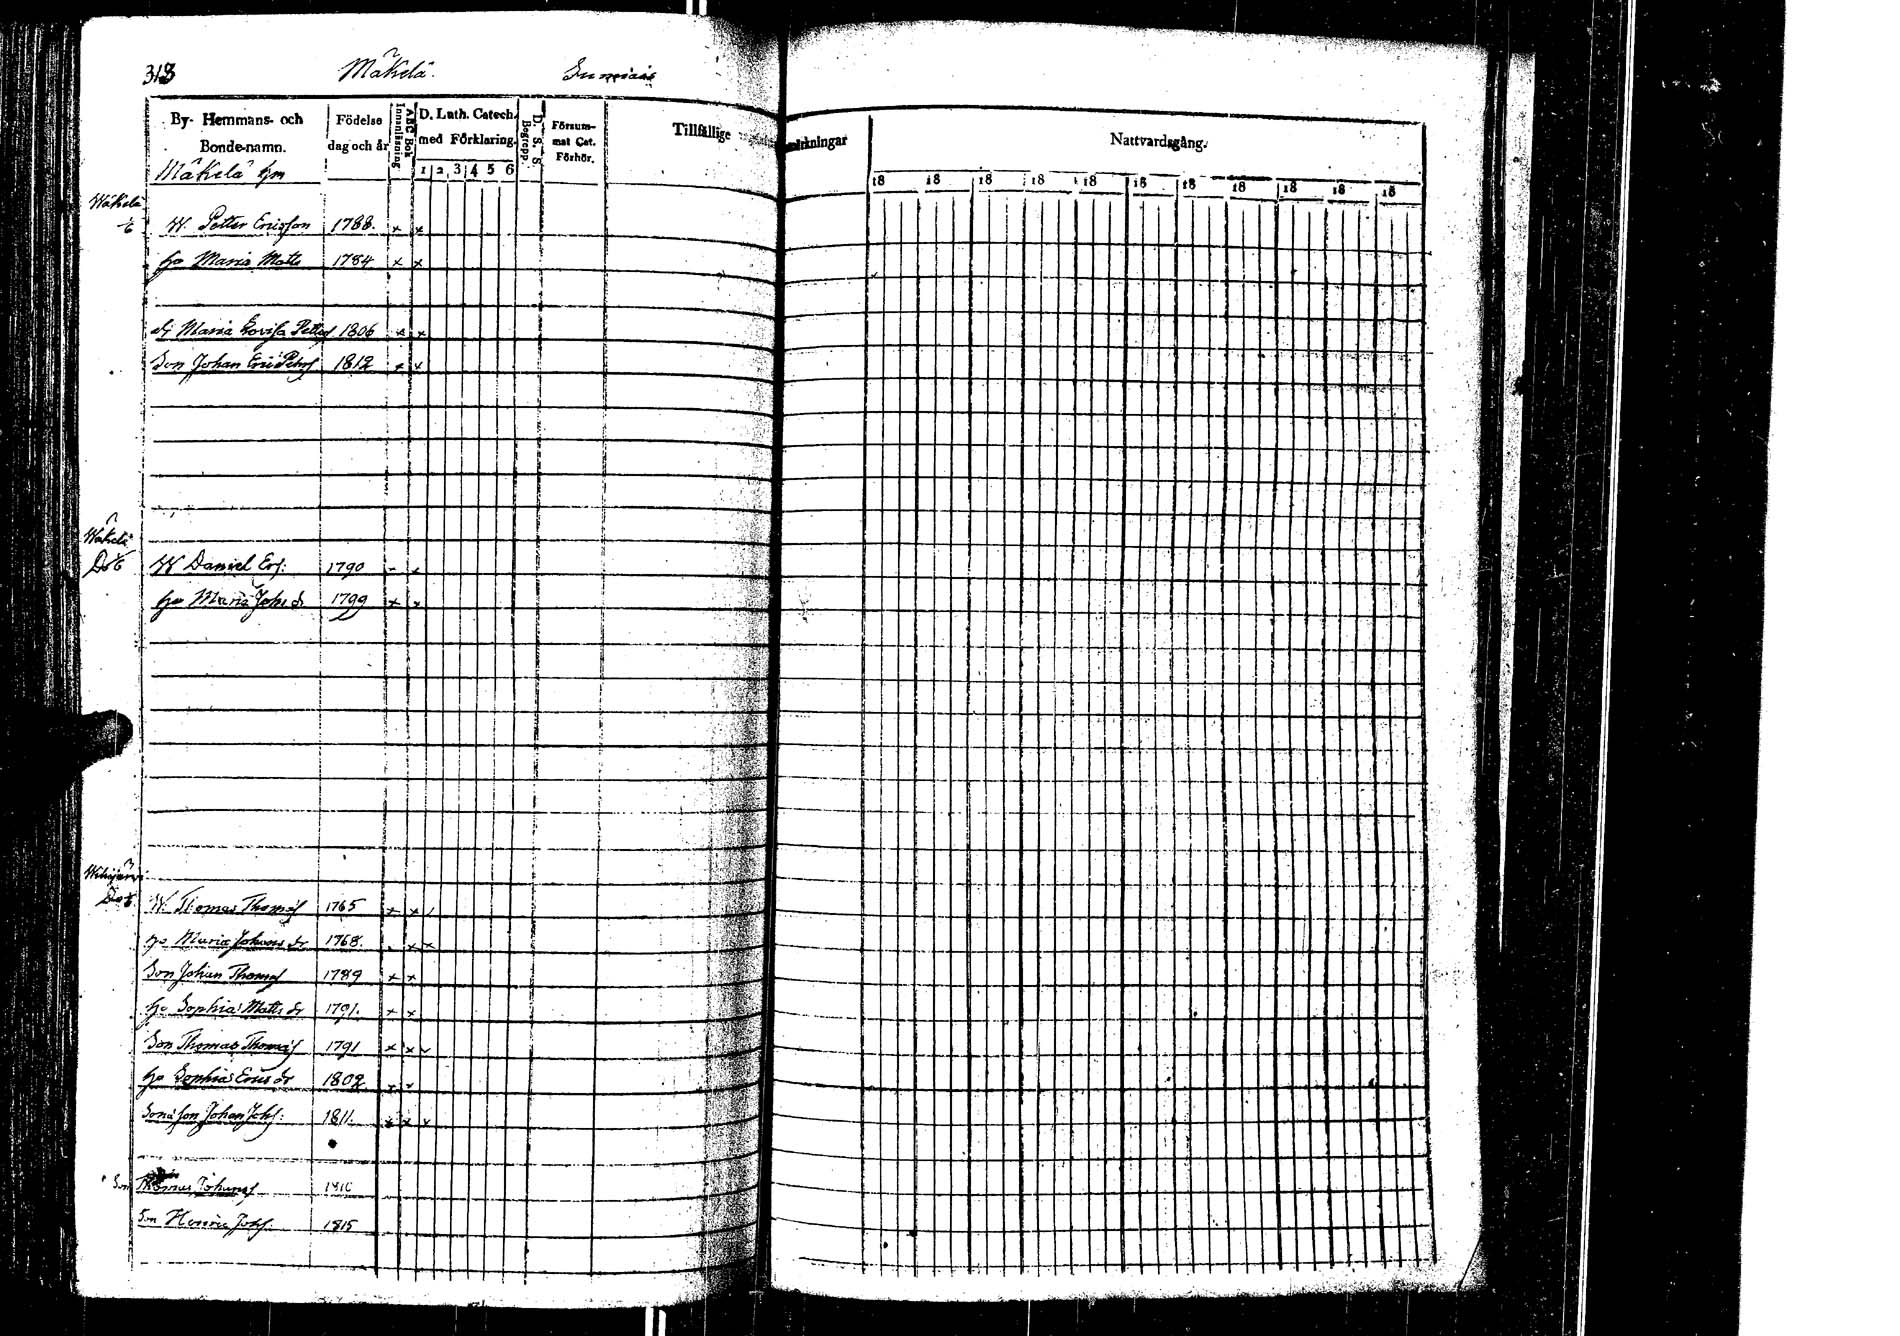 318 Mäkelä. Sumiais
By- Hemmans- och Bonde-namn.
Födelse dag och år
Innanläsning
ABC Bok
D. Luth. Catech. med Förklaring.
1 2 3 4 5 6
D. S. S. Begrepp.
Försummat Cat. Förhör.
Tillfällige
märkningar
Nattvardsgång.
18 18 18 18 18 18 18 18 18 18 18
Mäkelä hm
W. Petter Ericsson 1788. x x
ho Maria Matts 1784 x x
Maria Lovisa 1806 x x
Son Johan Eric Petr 1812 x x
W Daniel Ers: 1790
ho Maria Johs dr 1799 x x
W. Thomas Thomas 1765 x x
ho Maria Johans dr 1768. x x
Son Johan Thomas 1789 x x
ho Sophia Matts dr 1791. x x
Son Thomas Thomas 1791 x x
ho Sophia Erics dr 1802 x x
Sonason Johan Johs: 1811. x x x
Son Thomas Johans
Son Henric Johs. 1815